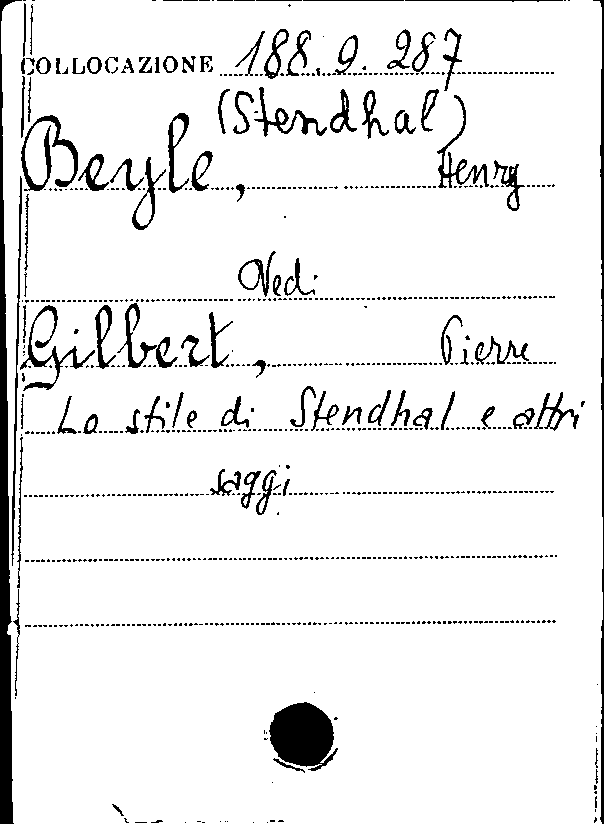 COLLOCAZIONE 188.9.287
(Stendhal)
Beyle, Henry
Vedi
Gilbert, Pierre
Lo stile di Stendhal e altri
saggi